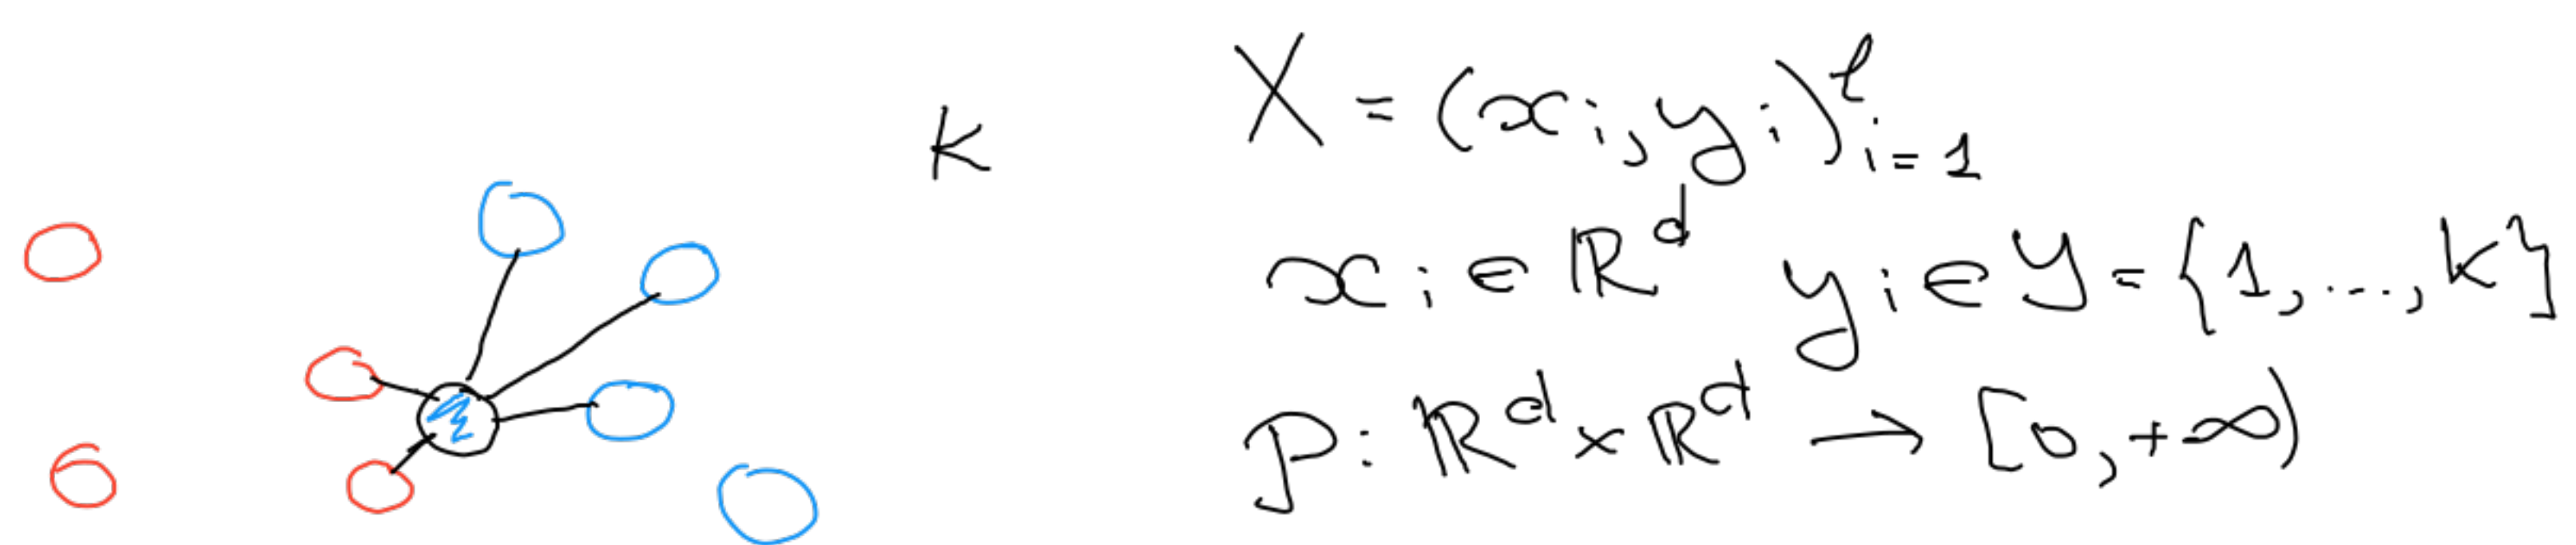 k
X = (x_i, y_i)_{i=1}^ℓ
x_i ∈ ℝ^d y_i ∈ Y = {1, ..., k}
ρ: ℝ^d × ℝ^d → [0, +∞)